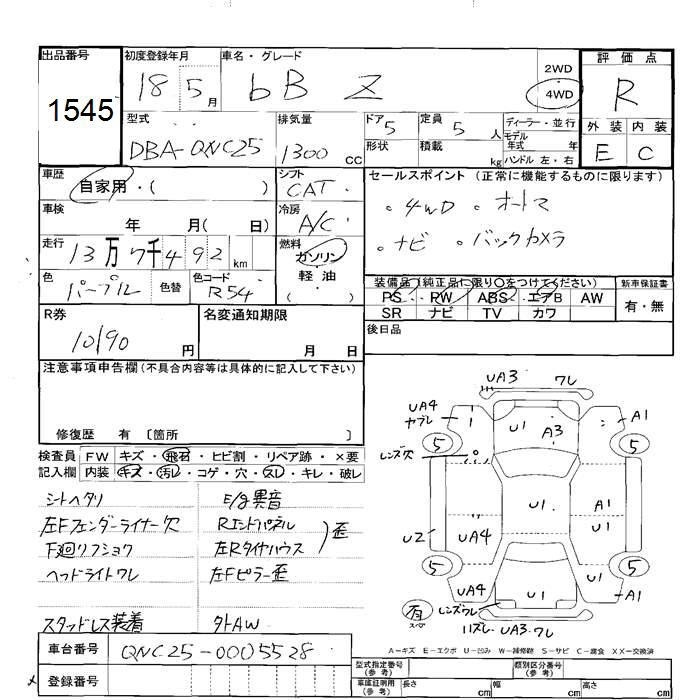 出品番号
1545
初度登録年月
18 5 月
車名・グレード
bB Z
2WD
4WD
評価点
R
外装 内装
E C
型式
DBA-QNC25
排気量
1300 CC
ドア 5
形状
定員 5 人
積載 kg
ディーラー・並行
モデル
年式 年
ハンドル 左・右
車歴
自家用・( )
シフト
CAT
車検
年 月( 日)
冷房
A/C
走行
13万7千492 km
燃料
ガソリン
軽油
( )
色
パープル
色替
色コード
R54
セールスポイント (正常に機能するものに限ります)
。4WD 。オートマ
。ナビ 。バックカメラ
装備品(純正品に限り○をつけてください)
PS PW ABS エアB AW
SR ナビ TV カワ
新車保証書
有・無
後日品
R券
10190 円
名変通知期限
月 日
注意事項申告欄(不具合内容等は具体的に記入して下さい)
修復歴 有 〔箇所 〕
検査員 FW キズ・飛石・ヒビ割・リペア跡・×要
記入欄 内装 キズ・汚レ・コゲ・穴・スレ・キレ・破レ
シートヘタリ
左Fフェンダーライナー欠
下廻リフショク
ヘッドライトワレ
スタッドレス装着
E/g異音
Rエンドパネル
左Rタイヤハウス
歪
左Fピラー歪
外AW
UA3 ワレ
UA4
ヤブレ
U1
A3
A1
5
5
レンズ欠
U1
A1
U1
U2
UA4
5
5
UA4
U1
U1
A1
有
スペア
レンズワレ
ハズレ UA3 ワレ
A-キズ E-エクボ U-凹み W-補修跡 S-サビ C-腐食 XX-交換済
車台番号 QNC25-0005528
登録番号
型式指定番号
(参考)
類別区分番号
(参考)
車庫証明用
(参考)
長さ cm
幅 cm
高さ cm